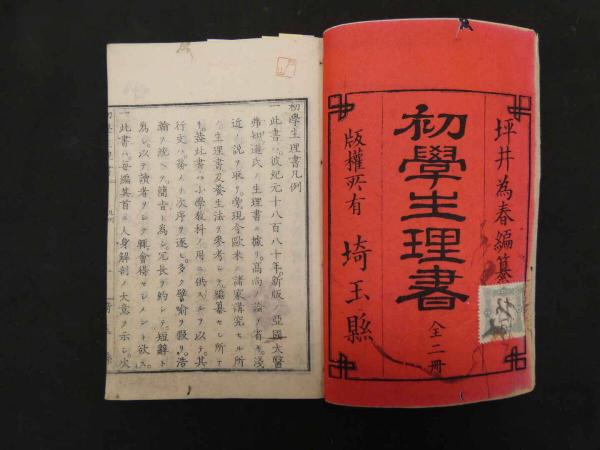 坪井為春編纂
初學生理書
全二冊
版權所有
埼玉縣
初學生理書凡例
一此書ハ彼紀元千八百八十年新版ノ亞國大醫
弗知遜氏ノ生理書ニ據リ高尚ノ論ヲ省キ淺
近ノ説ヲ取リ旁現今歐米ノ諸家講究セル所ノ
生理書及養生法ヲ參考シテ編纂セル所ナ
リ蓋此書ハ小學教科ノ用ニ供スルヲ以テ其
行文ハ務メテ次序ヲ逐ヒ多ク譬喻ヲ設ケ浩
瀚ヲ統ヘテ簡古トシ冗長ヲ約シテ短辭ト
爲シ以テ讀者ヲシテ輒會得セシメント欲ス
一此書ハ每編其首ニ人身解剖ノ大意ヲ示シ次